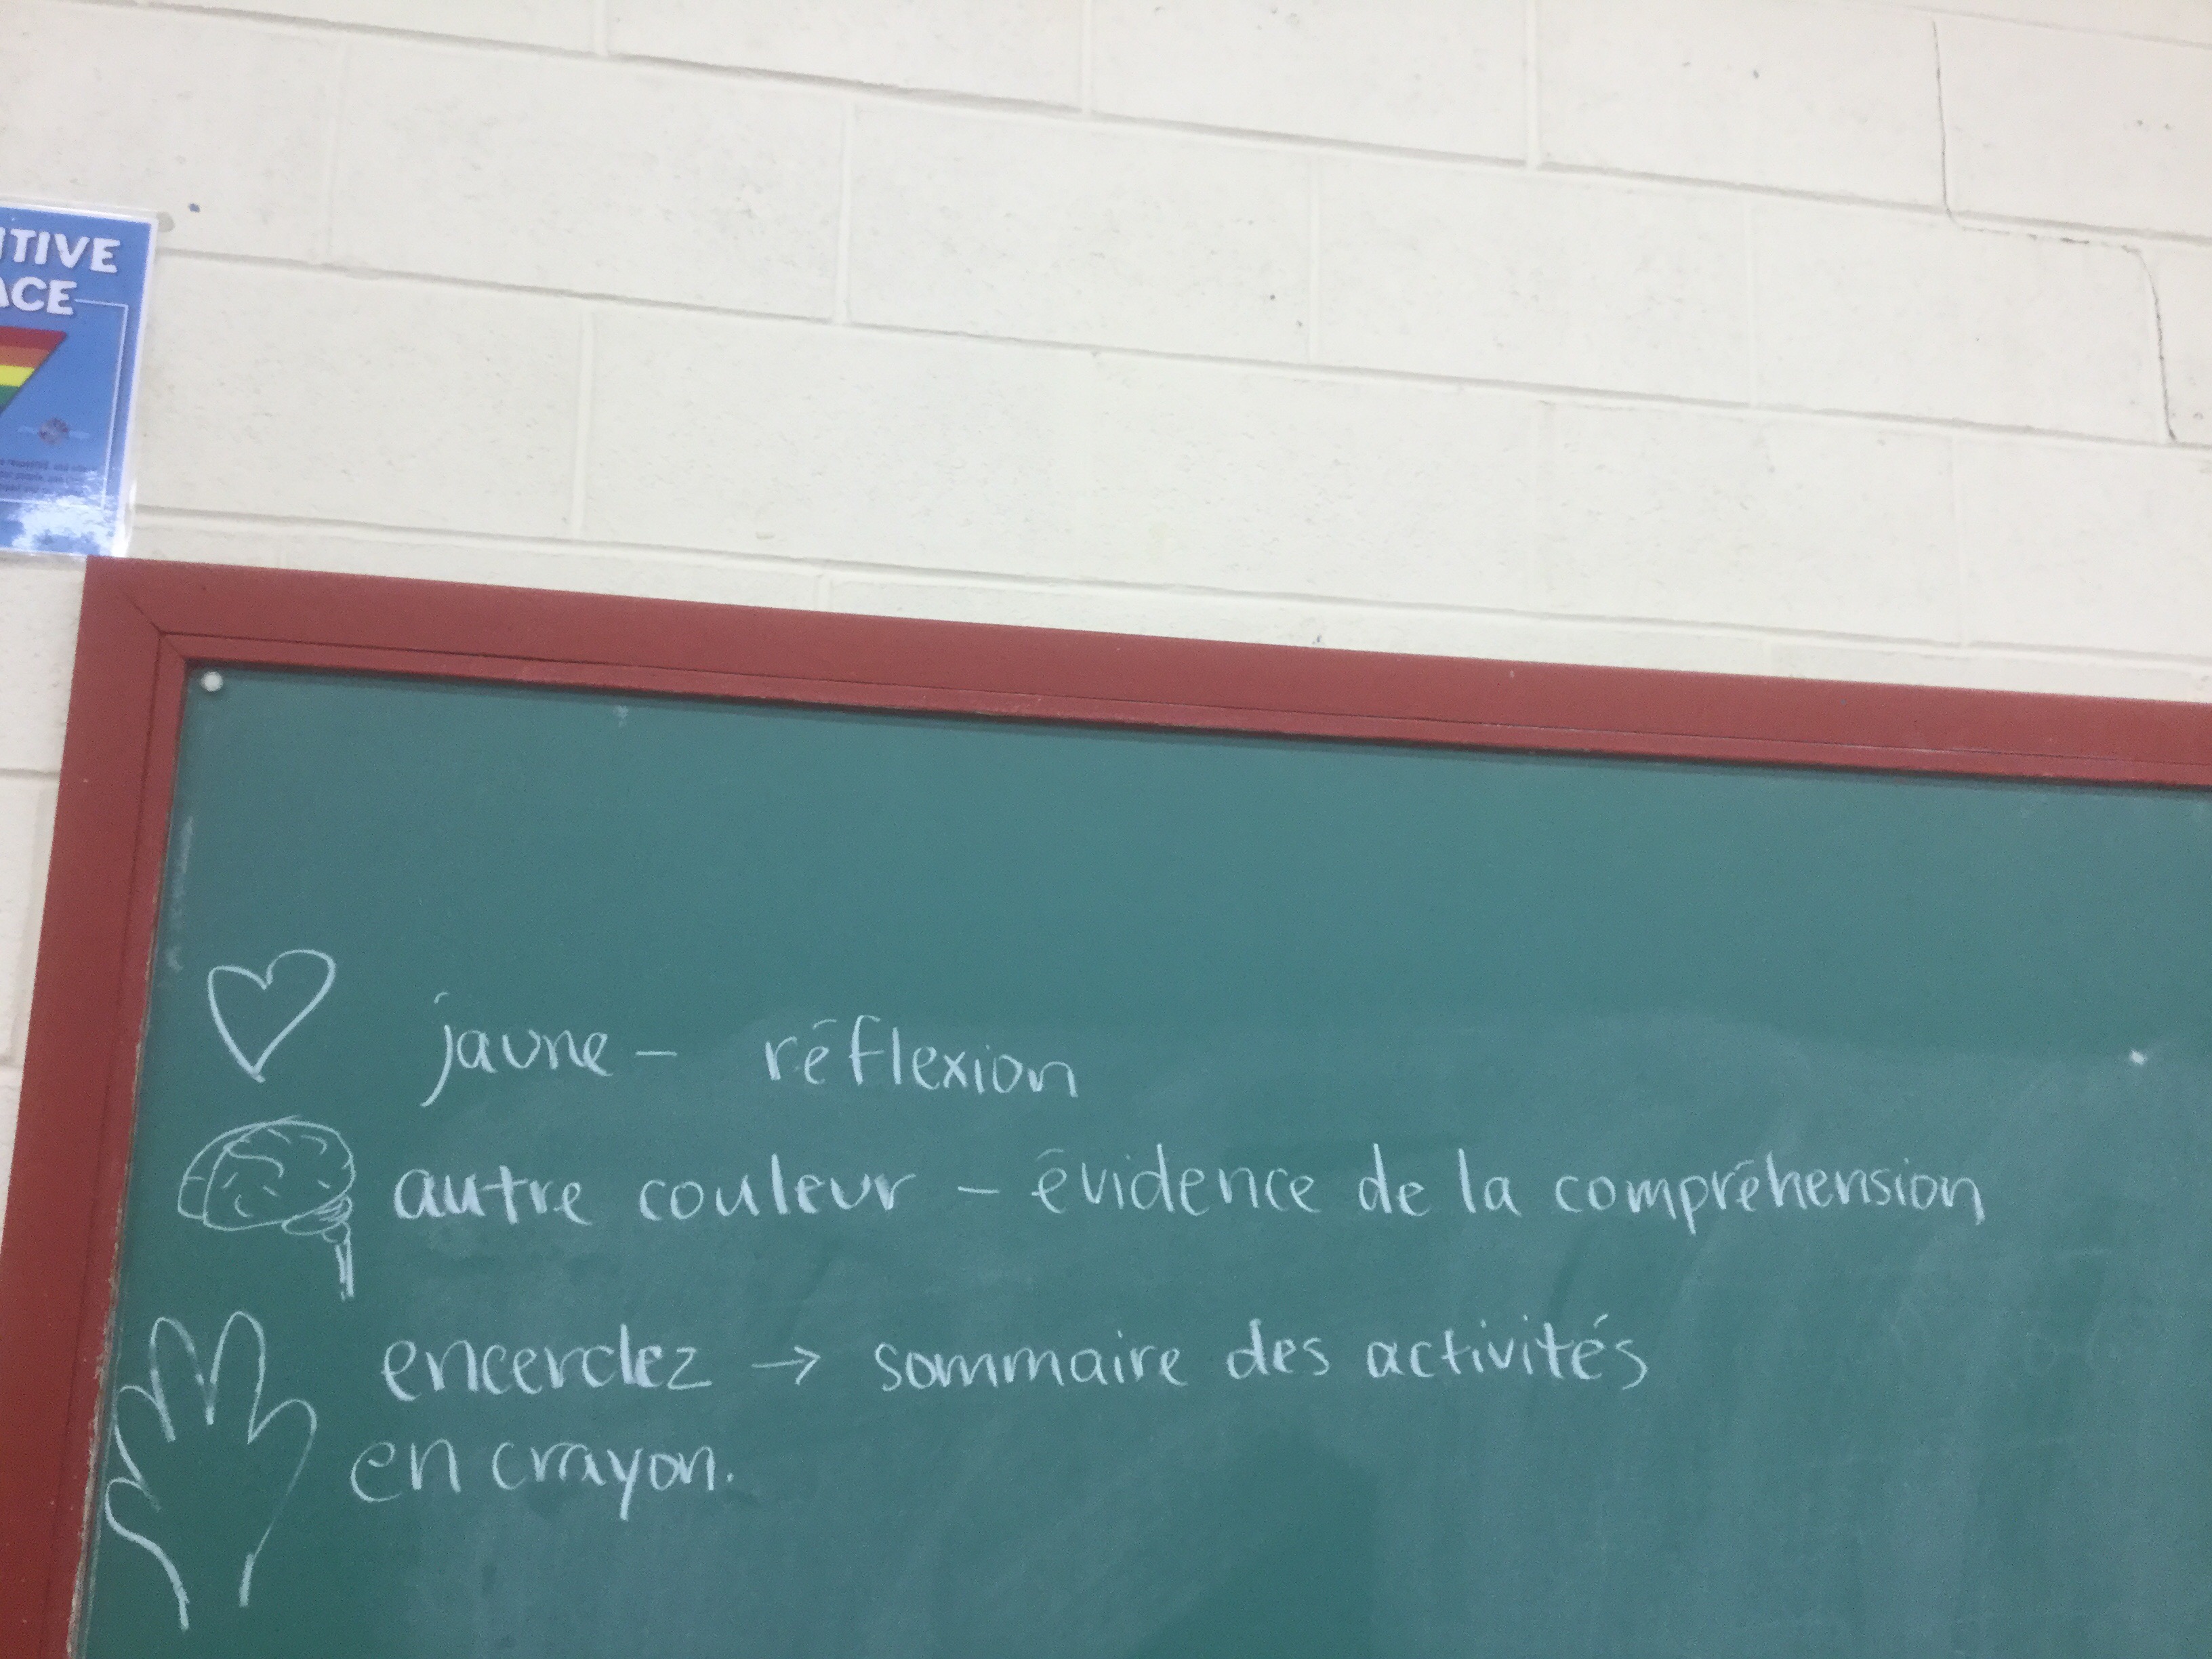 ITIVE
ACE
jaune – réflexion
autre couleur – évidence de la compréhension
encerclez → sommaire des activités
en crayon.